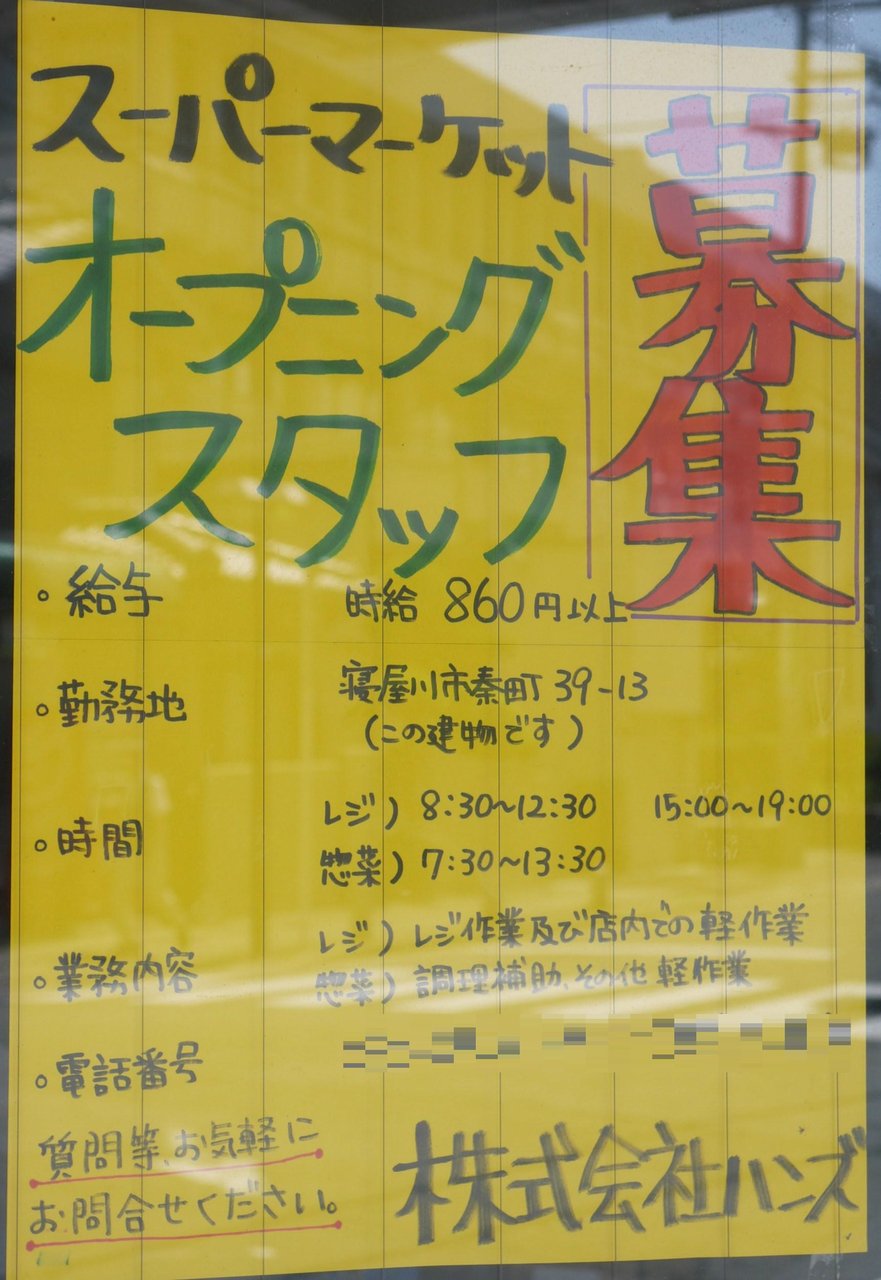 スーパーマーケット
オープニング
スタッフ
募集
。給与 時給 860円以上
。勤務地 寝屋川市秦町 39-13
(この建物です)
。時間 レジ) 8:30~12:30 15:00~19:00
惣菜) 7:30~13:30
。業務内容 レジ) レジ作業及び店内での軽作業
惣菜) 調理補助、その他 軽作業
。電話番号
質問等、お気軽に
お問合せください。
株式会社ハンズ